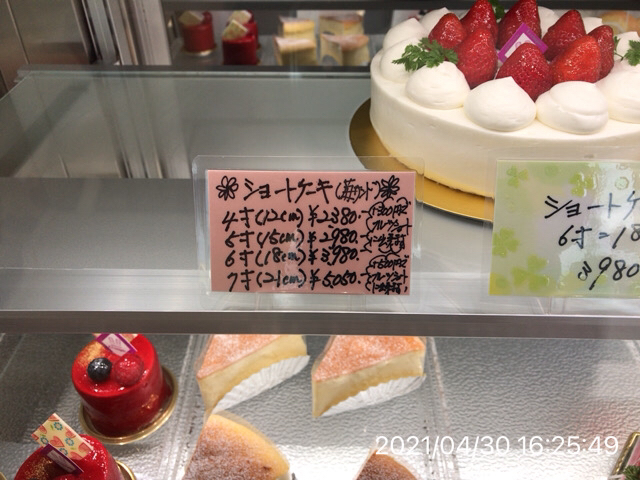 ショートケーキ(苺サンド)
4寸(12cm) ¥2,380.
5寸(15cm) ¥2,980.
6寸(18cm) ¥3,980.
7寸(21cm) ¥5,050.
ショートケ
6寸=18
3980
2021/04/30 16:25:49